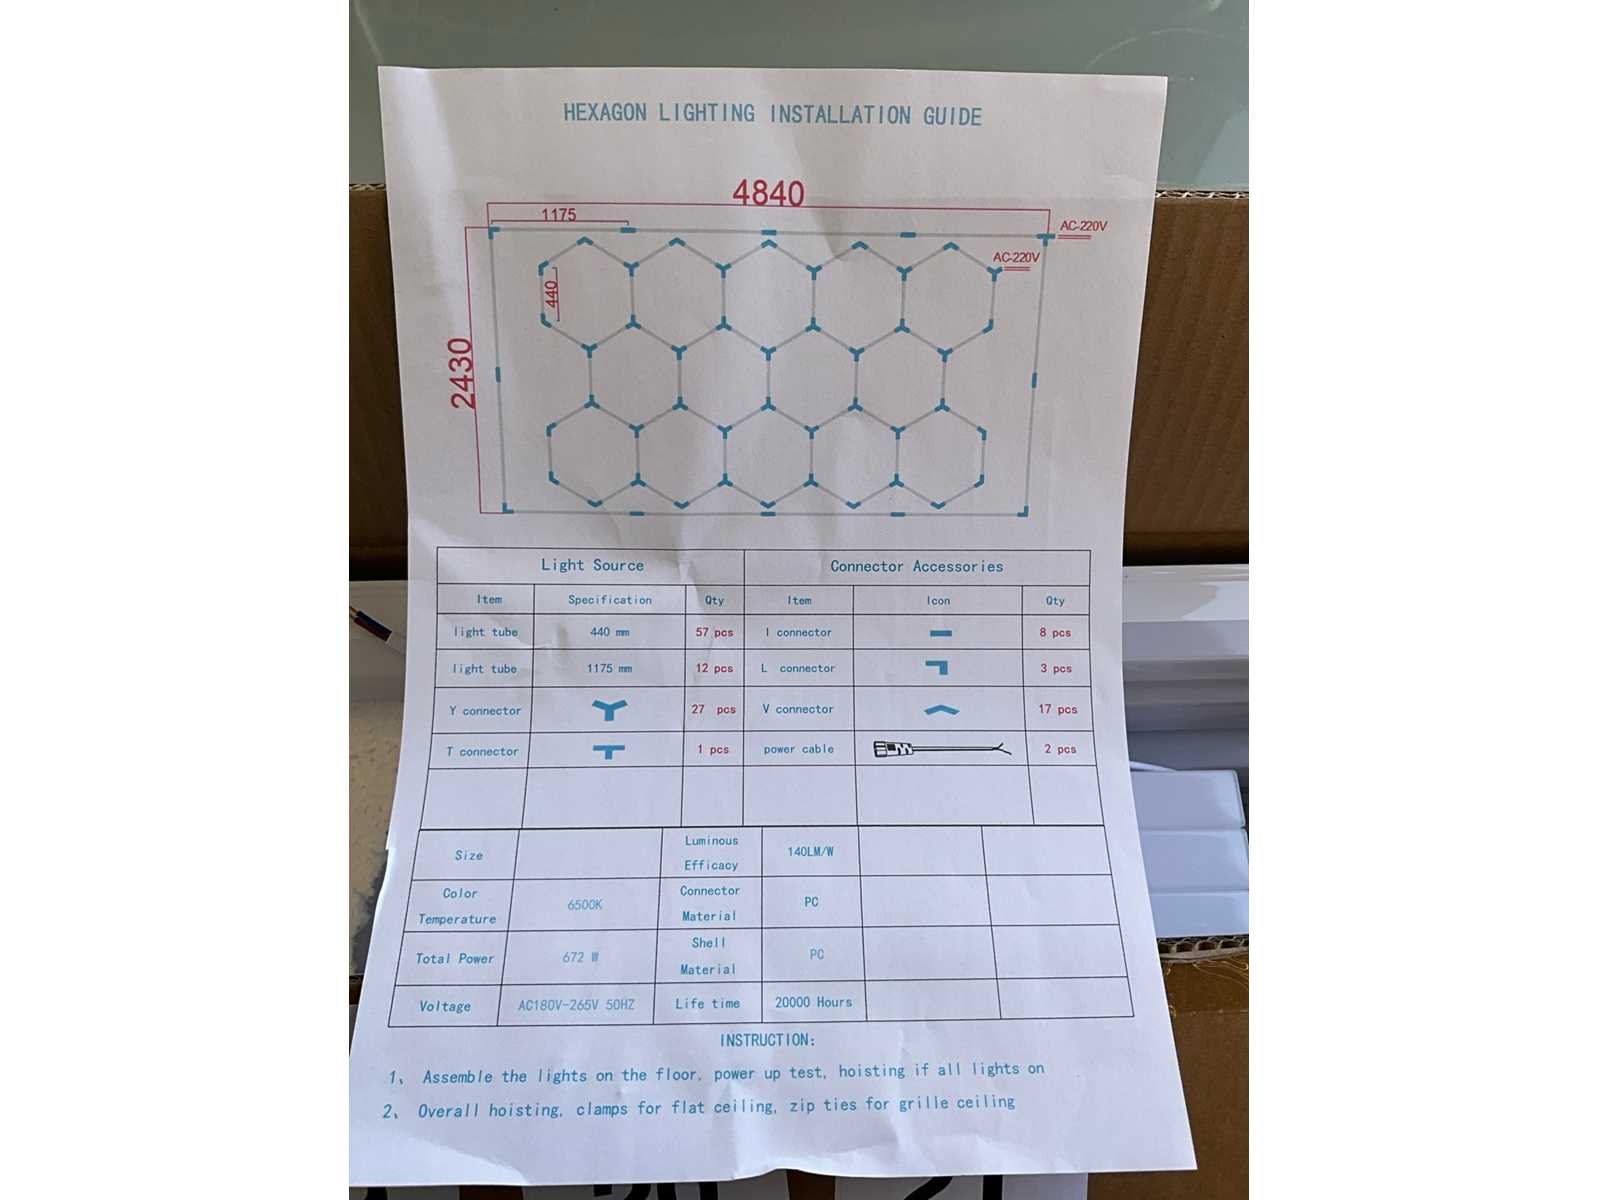 HEXAGON LIGHTING INSTALLATION GUIDE
4840
1175
AC-220V
AC-220V
440
2430
Light Source Connector Accessories
Item Specification Qty Item Icon Qty
light tube 440 mm 57 pcs I connector 8 pcs
light tube 1175 mm 12 pcs L connector 3 pcs
Y connector 27 pcs V connector 17 pcs
T connector 1 pcs power cable 2 pcs
Size Luminous Efficacy 140LM/W
Color Temperature 6500K Connector Material PC
Total Power 672 W Shell Material PC
Voltage AC180V-265V 50HZ Life time 20000 Hours
INSTRUCTION:
1、 Assemble the lights on the floor, power up test, hoisting if all lights on
2、 Overall hoisting, clamps for flat ceiling, zip ties for grille ceiling